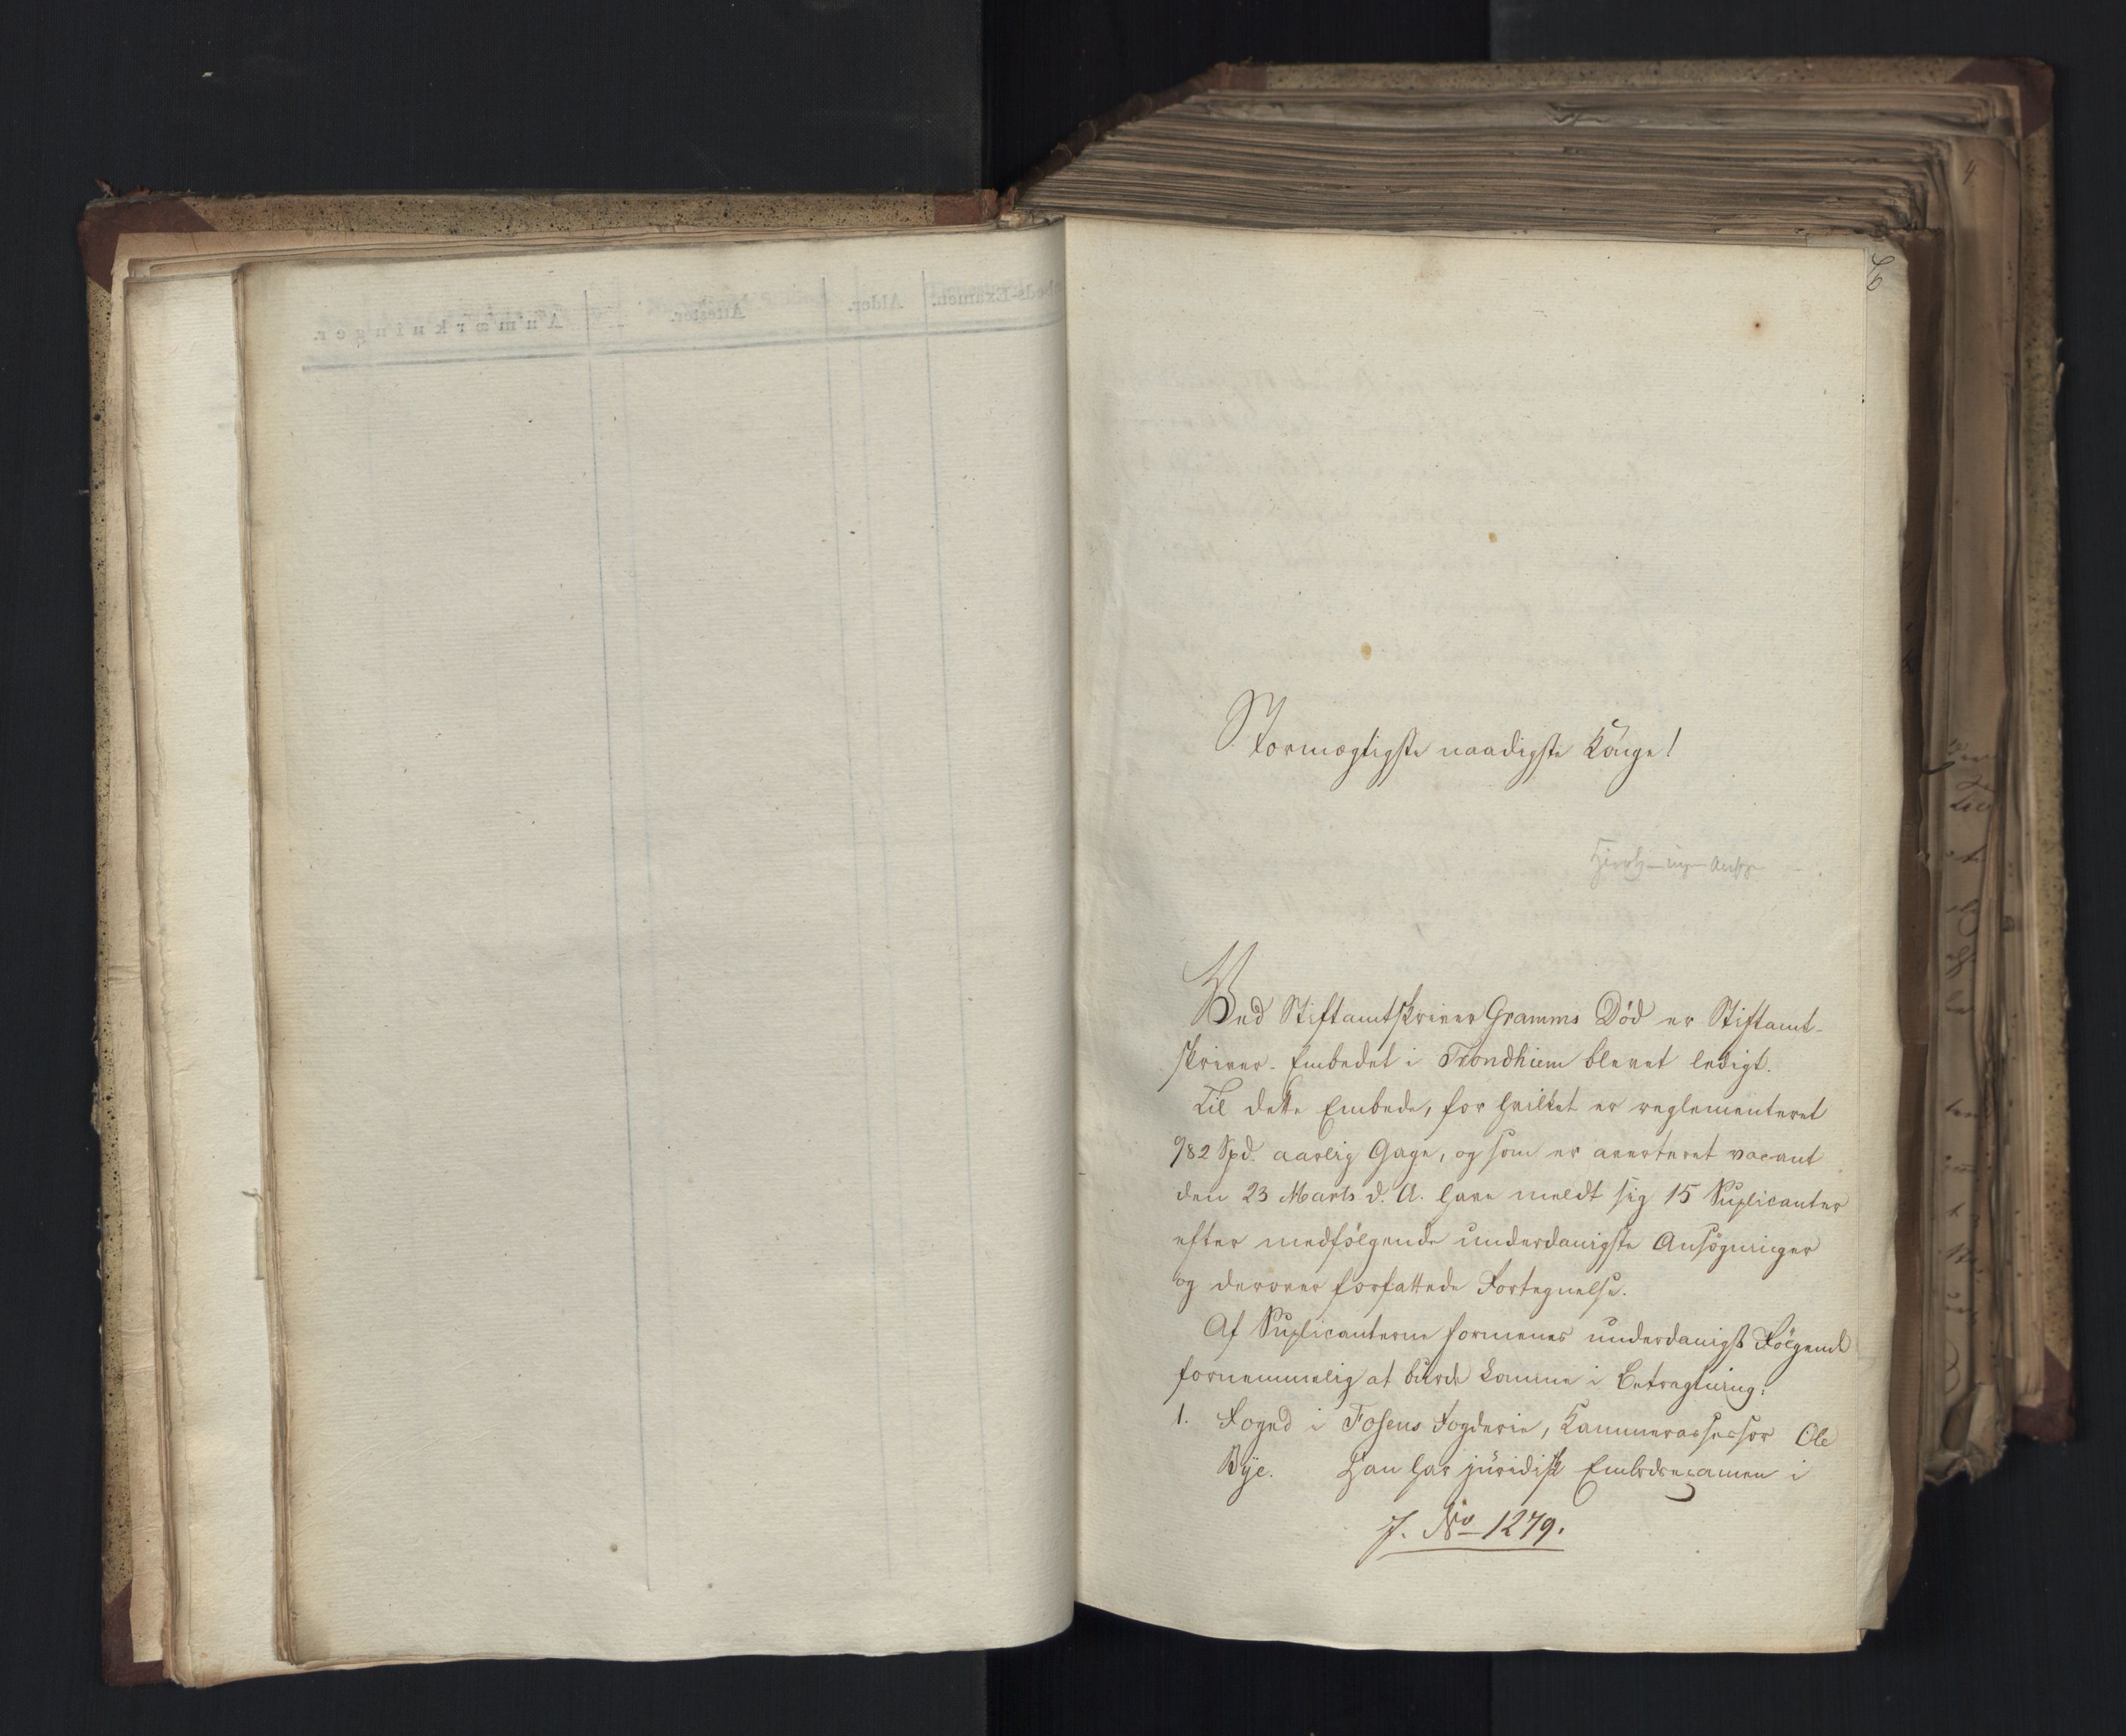 Stormægtigste naadigste Konge!
Ved Stiftamtskriver Gramms Död er Stiftamt-
skriver-Embedet i Trondhiem blevet ledigt.
Til dette Embede, for hvilket er reglementeret
982 Spd. aarlig Gage, og som er averteret vacant
den 23 Marts d. A. have meldt sig 15 Suplicanter
efter medfölgende underdanigste Ansögninger
og derover forfattede Fortegnelse.
Af Suplicanterne formenes underdanigst Fölgende
fornemmelig at burde komme i Betragtning:
1. Foged i Fosens Fogderie, Kammerassessor Ole
Bÿe. Han har juridisk Embedsexamen i
J. No 1279.
6
Anmærkninger.
Attester.
Alder.